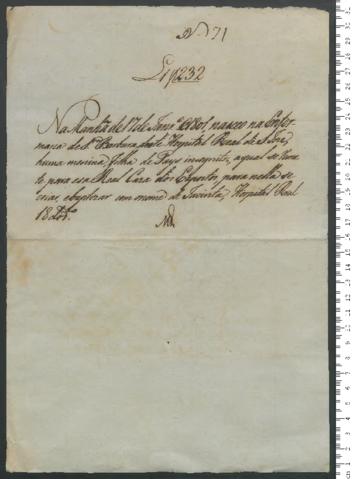 N.º 71
L 1 f 232
Na Manhã de 17 de Janr.º de 1801, nasceo na Enfer
maria de S.ta Barbara deste Hospital Real de S. Joze,
huma menina, filha de Pays incognitos, a qual se Reme
te para essa Real Caza dos Expostos, para nella se
crear, e baptizar com o nome de Jacinta, Hospital Real
18 dto.